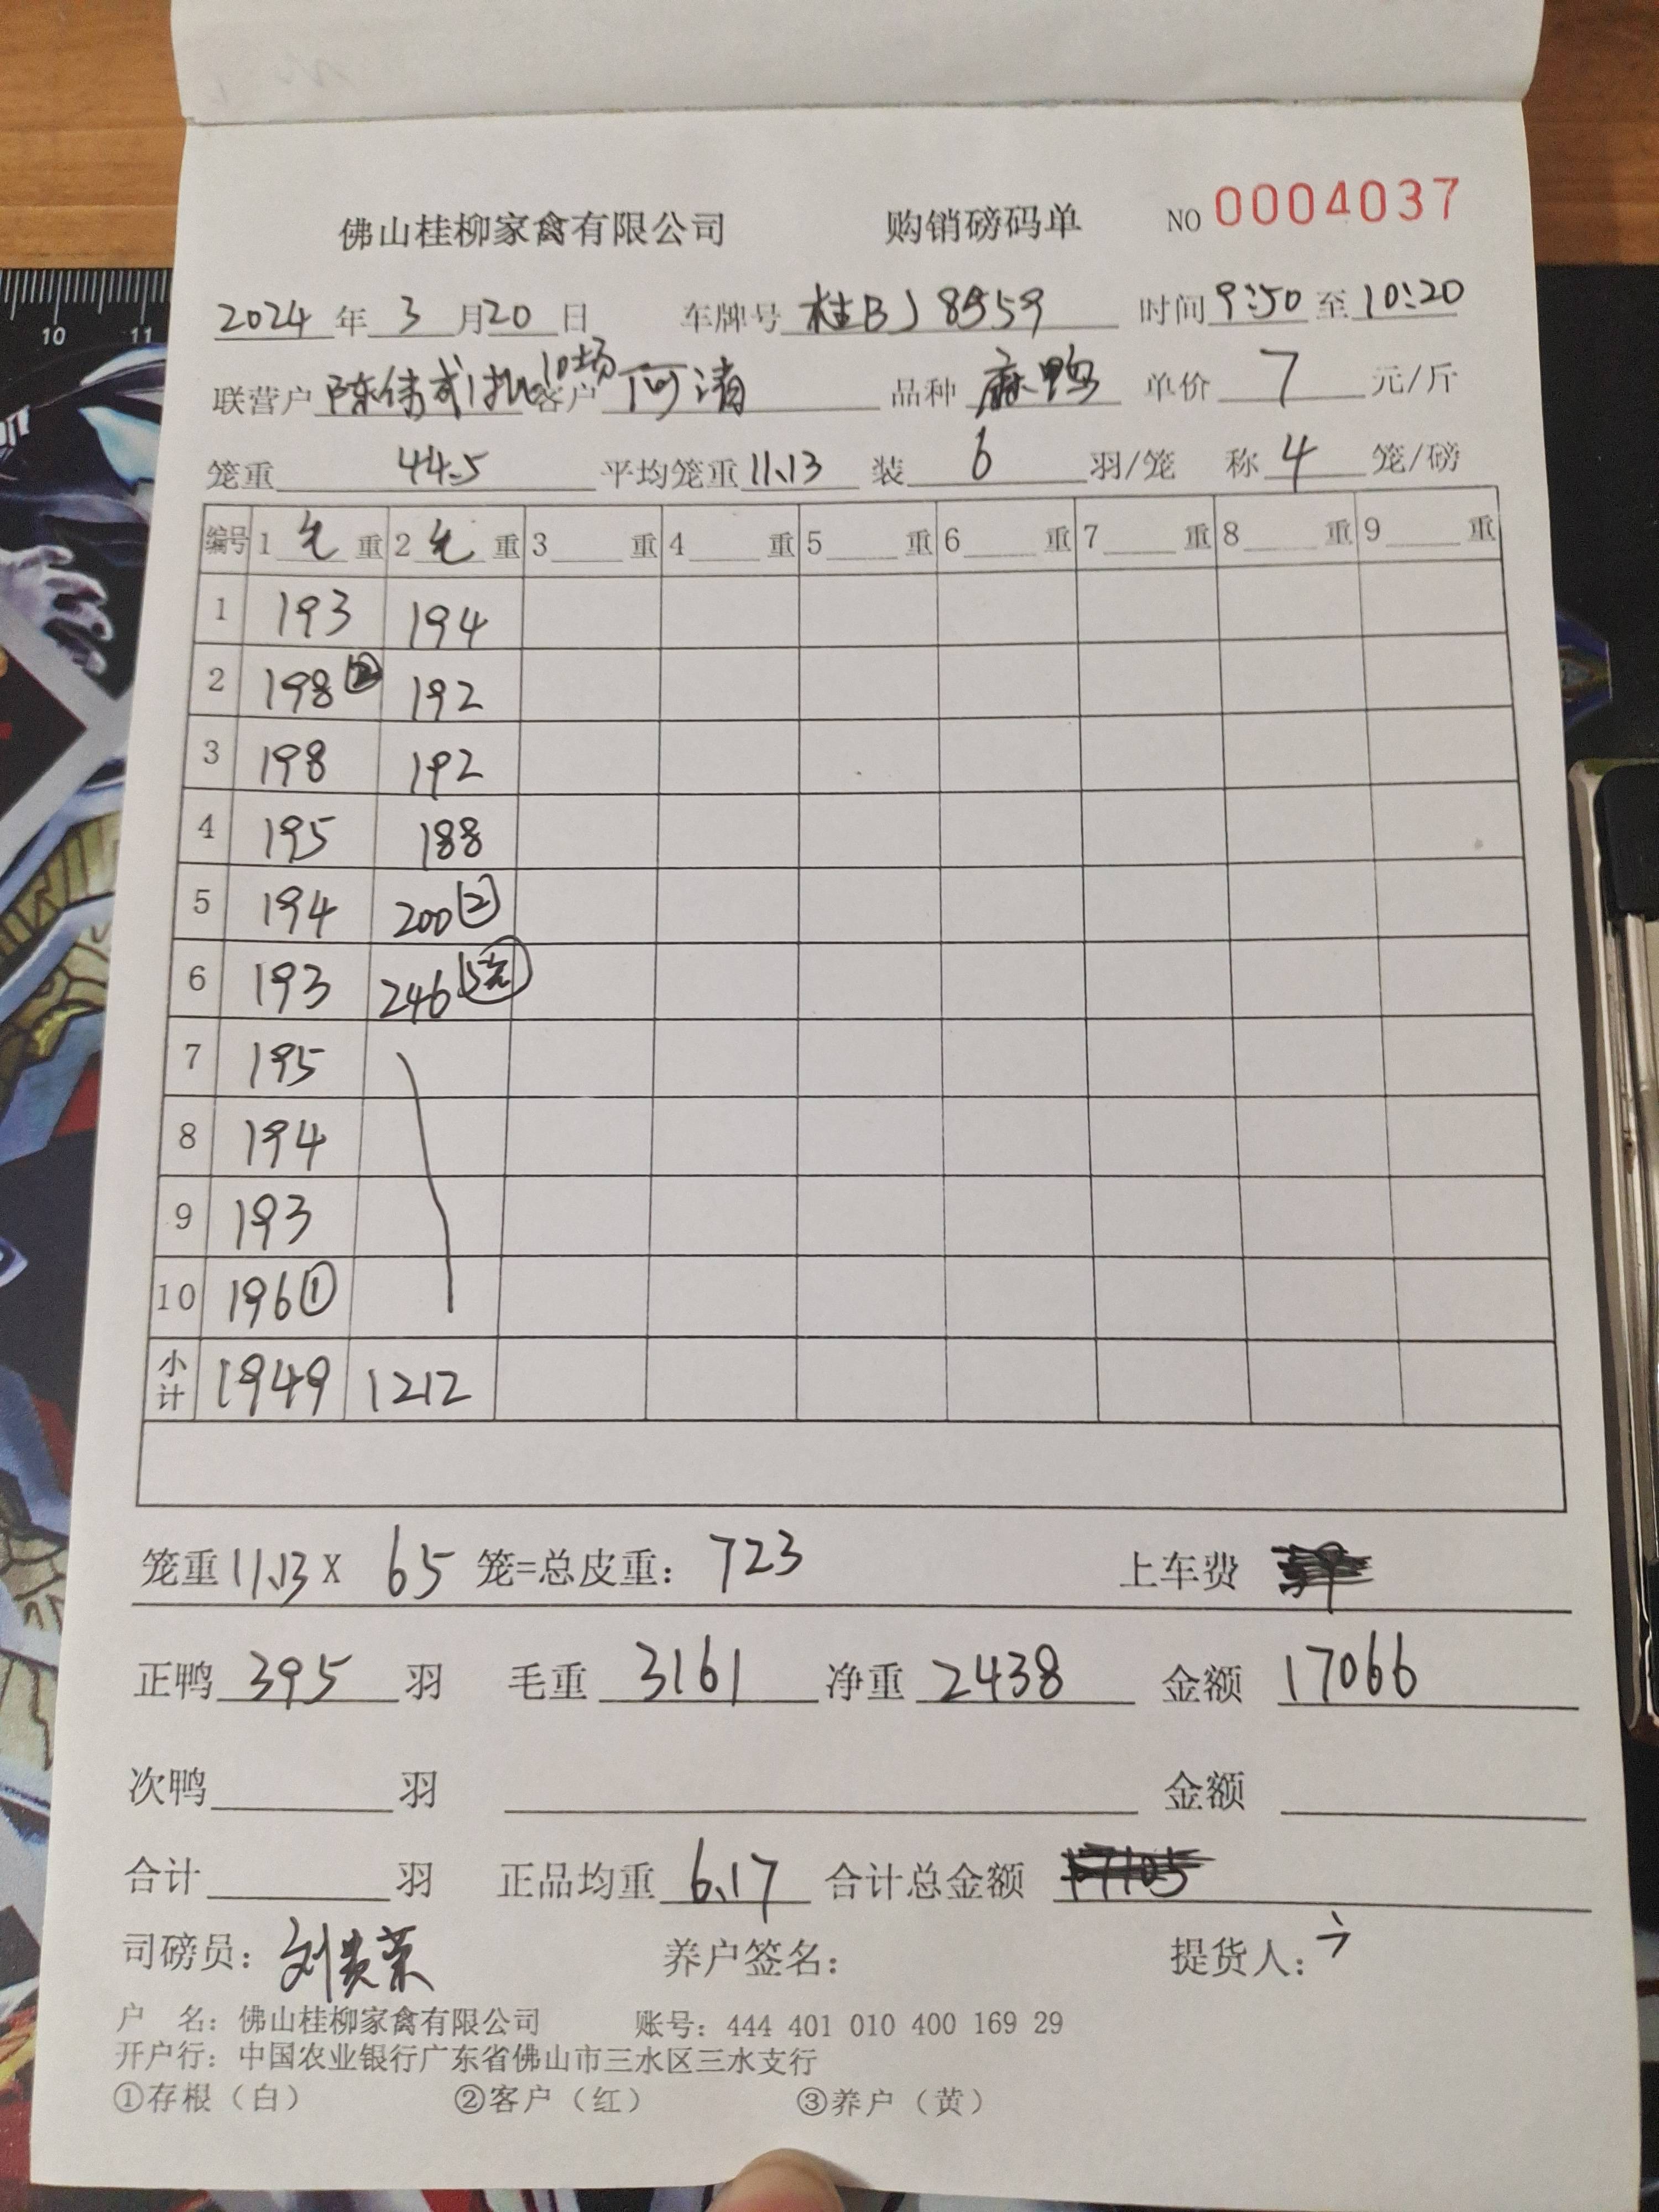 佛山桂柳家禽有限公司 购销磅码单 NO 0004037
2024年3月20日 车牌号 桂BJ8559 时间 9:50 至 10:20
联营户 陈伟武1批10场 客户 何清 品种 麻鸭 单价 7 元/斤
笼重 44.5 平均笼重 11.13 装 6 羽/笼 称 4 笼/磅
编号 1 毛 重 2 毛 重 3 重 4 重 5 重 6 重 7 重 8 重 9 重
1 193 194
2 198② 192
3 198 192
4 195 188
5 194 200②
6 193 246
7 195
8 194
9 193
10 196①
小计 1949 1212
笼重 11.13 X 65 笼=总皮重： 723 上车费
正鸭 395 羽 毛重 3161 净重 2438 金额 17066
次鸭 羽 金额
合计 羽 正品均重 6.17 合计总金额
司磅员： 刘贵荣 养户签名： 提货人：
户 名：佛山桂柳家禽有限公司 账号：444 401 010 400 169 29
开户行：中国农业银行广东省佛山市三水区三水支行
①存根（白） ②客户（红） ③养户（黄）
10 11